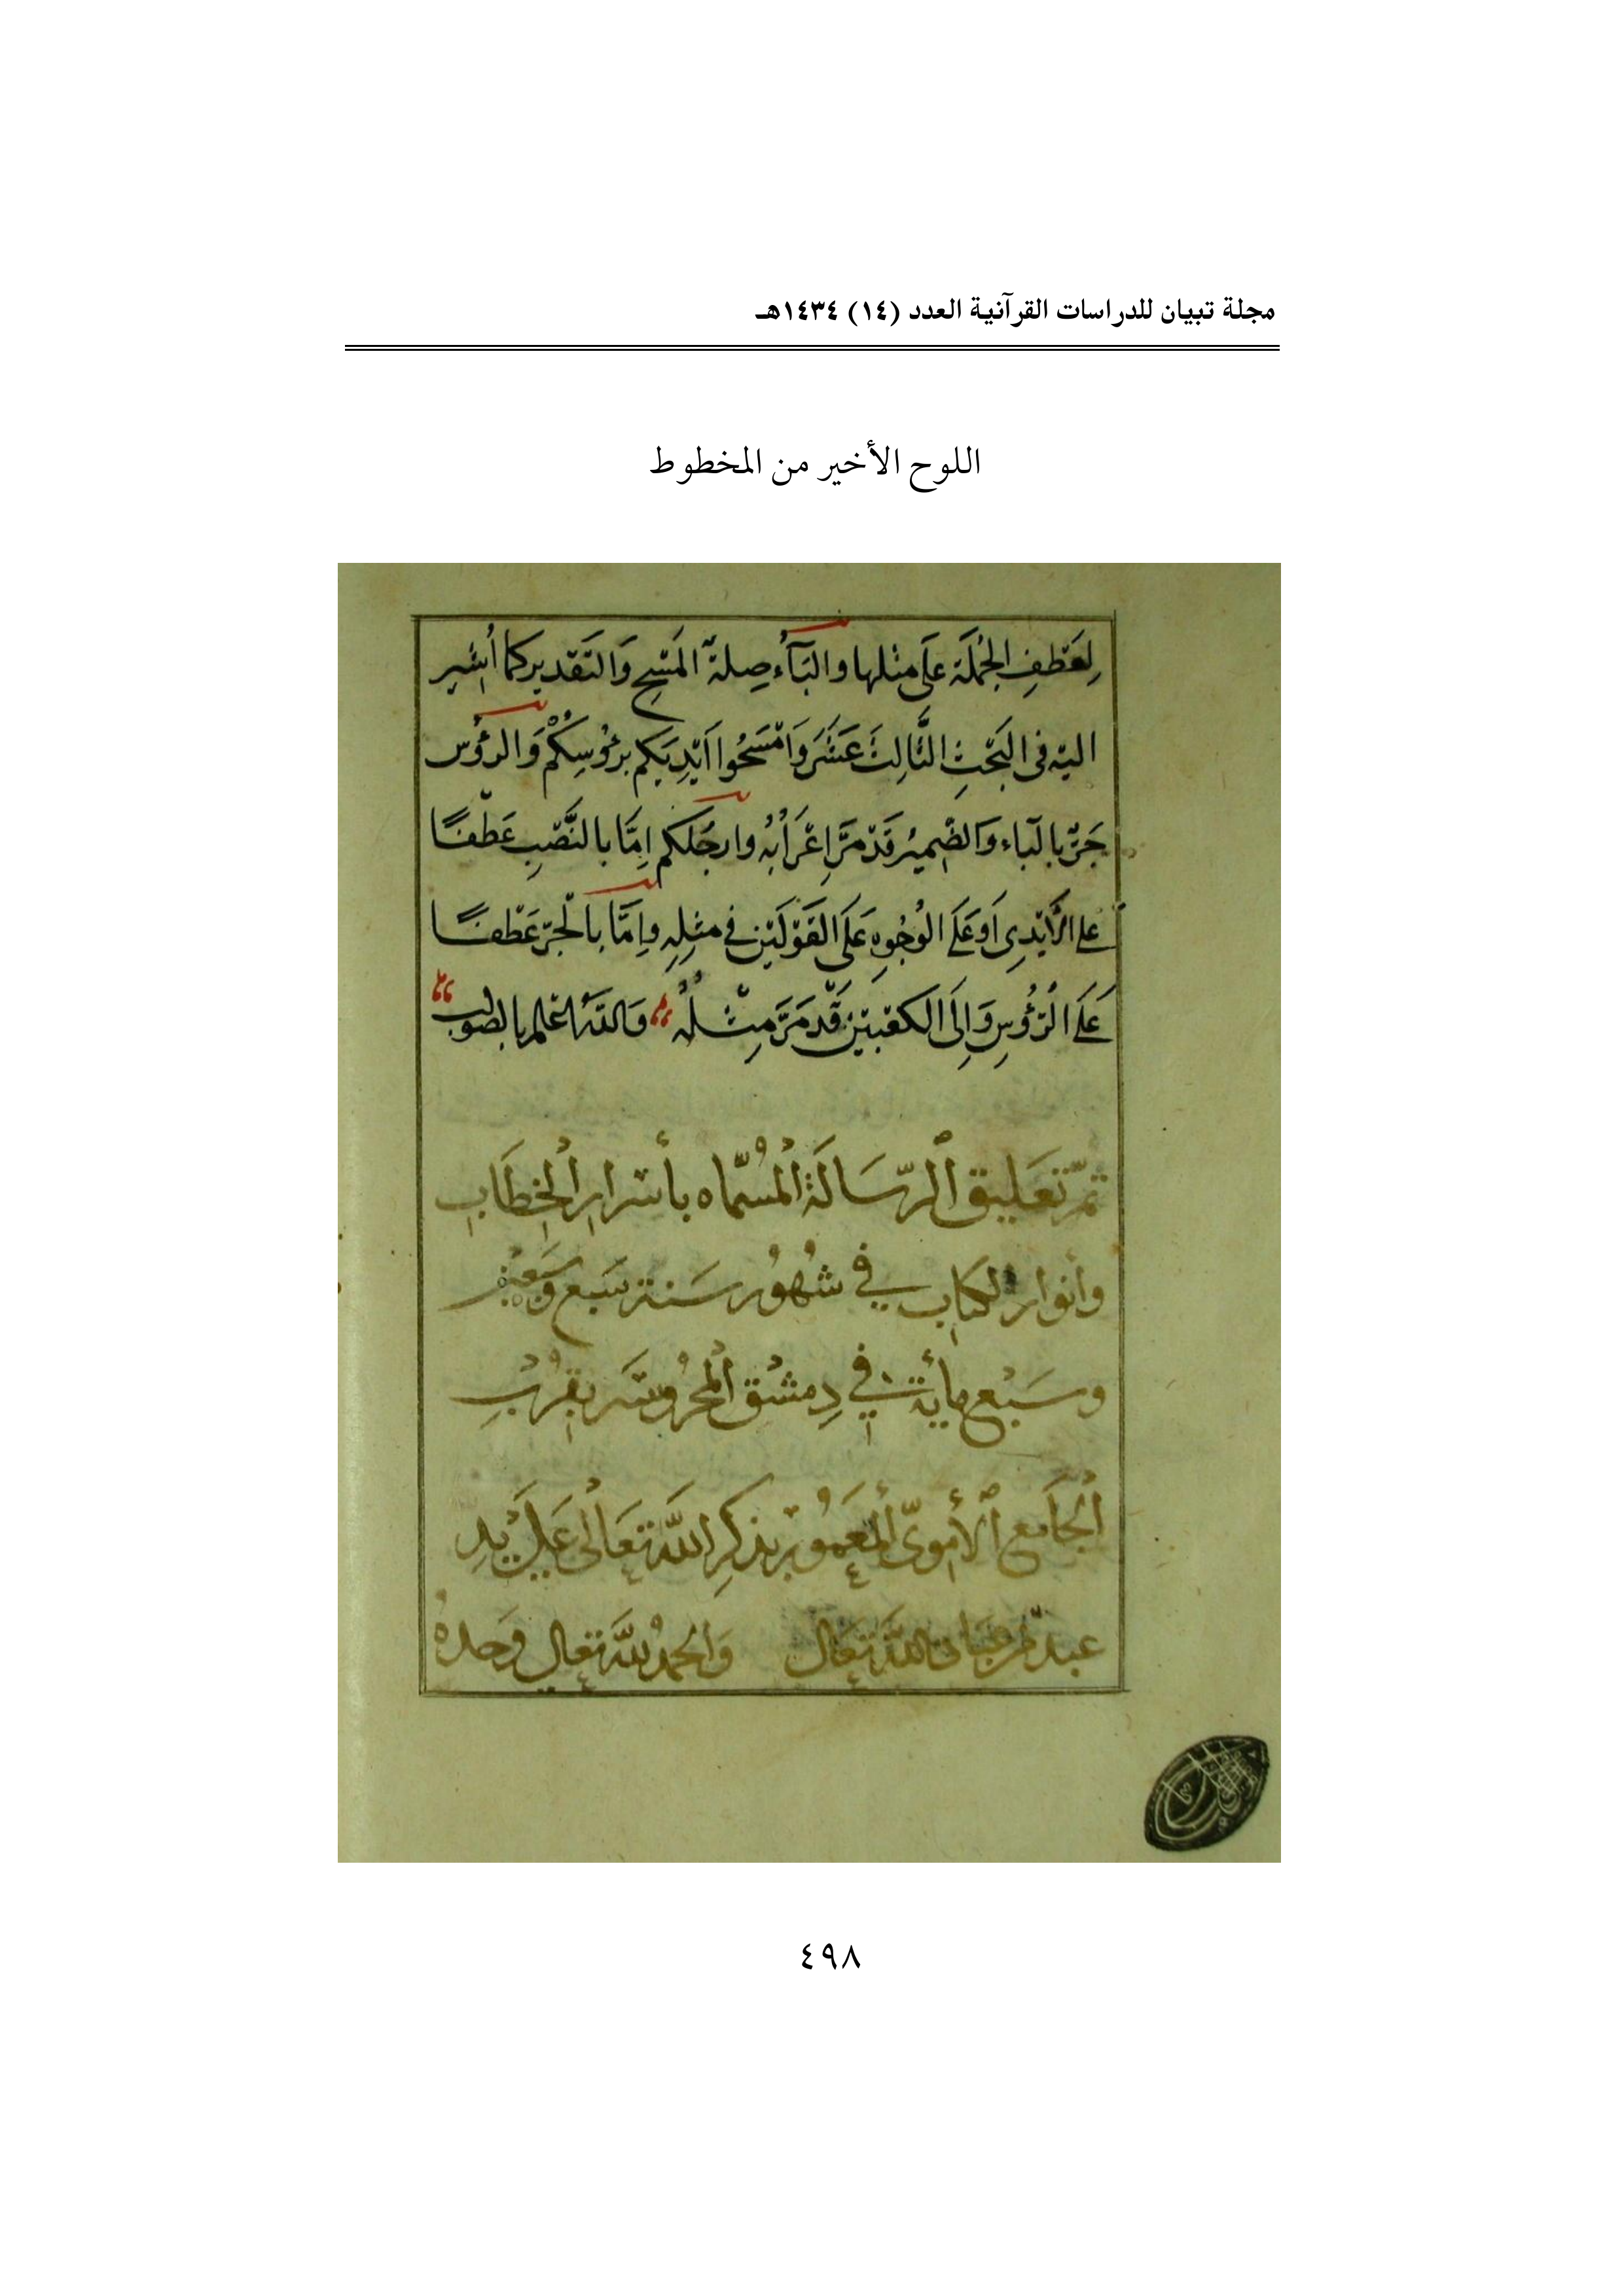 مجلة تبيان للدراسات القرآنية العدد (١٤) ١٤٣٤هـ
اللوح الأخير من المخطوط
لِعَطْفِ الجُمْلَة عَلَى مثلها والبَآء صِلة المَسْحِ وَالتَقدير كما اُشير
اليْه فى البَحْثِ الثَّالِثَ عَشَرَ وَامْسَحُوا اَيْدِيَكم برؤُسِكُمْ وَالرؤُس
جَرّ بالبَاء وَالضَّمِيرُ قَدْ مَرَّ اِعْرَابُهُ وارجُلَكم اِمَّا بالنَّصْبِ عَطْفًا
على الأَيْدِى اَو عَلَى الوُجُوهِ عَلَى القَوْلَيْن فى مثلِهِ واِمَّا بالْجرّ عَطْفًا
عَلَى الرُؤُوسِ وَاِلَى الكعْبَيْن قَدْ مَرَّ مِثْلُهُ وَاللهُ اعْلم بالصَواب
تمّ تعَليق الرّسَالَة المُسمّاه بأسْرار الخِطَابِ
وأنوار الكتاب في شُهُور سَنة سَبع وسَبعين
وسَبْع مأية في دِمشْق المحرُوسَه بقرْبِ
الجَامع الأمويّ المعمُور بذكرِ اللهِ تعَالى عَلَى يدِ
عبد الله تعَالى وَالحمدُ لله تعالى وحدهُ
٤٩٨